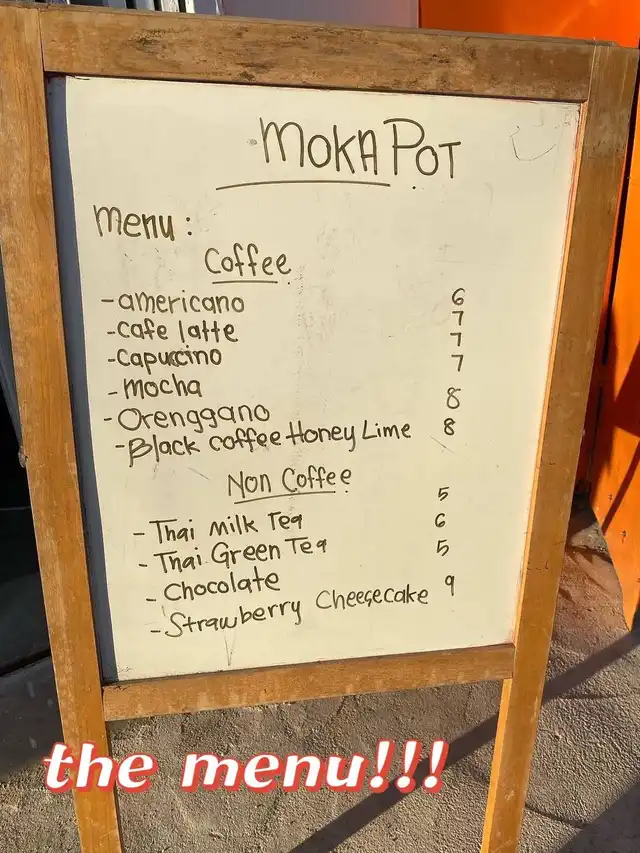 MOKA POT
menu :
Coffee
- americano 6
- cafe latte 7
- capuccino 7
- mocha 7
- Orenggano 8
- Black coffee Honey Lime 8
Non Coffee
- Thai milk Tea 5
- Thai Green Tea 6
- Chocolate 5
- Strawberry Cheesecake 9
the menu!!!